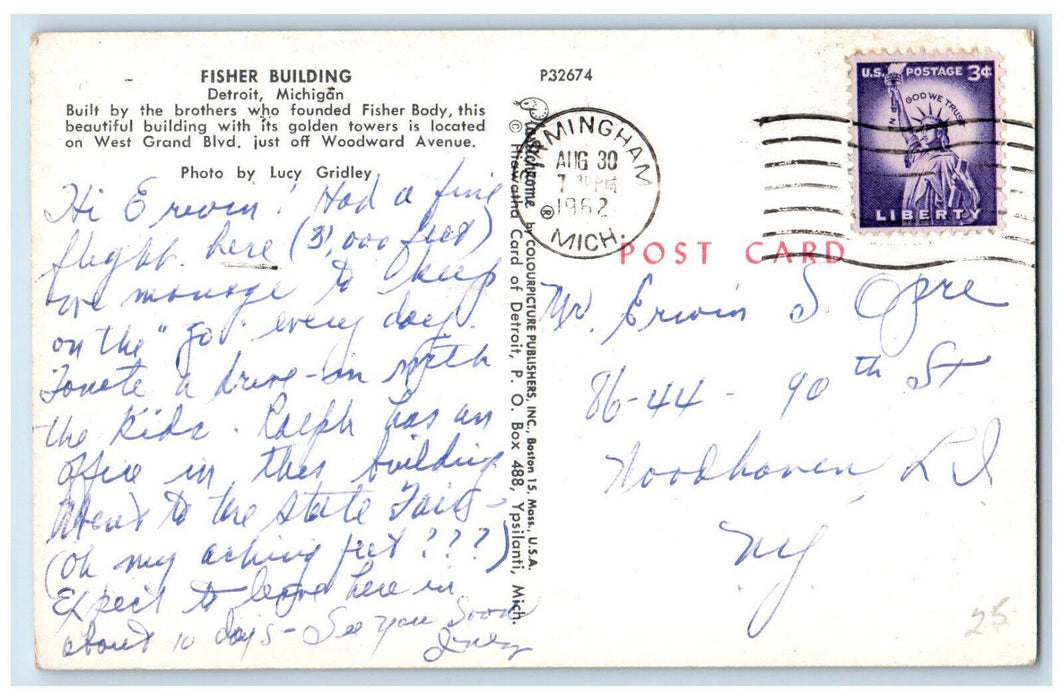 FISHER BUILDING
Detroit, Michigan
Built by the brothers who founded Fisher Body, this
beautiful building with its golden towers is located
on West Grand Blvd. just off Woodward Avenue.
Photo by Lucy Gridley
P32674
Hi Erwin! Had a fine
flight here (31,000 feet)
We manage to keep
on the "go" every day.
Tonite a drive-in with
the kids. Ralph has an
office in this building.
Went to the State Fair -
(Oh my aching feet???)
Expect to leave here in
about 10 days - See you soon
Plastichrome ® by COLOURPICTURE PUBLISHERS, INC., Boston 15, Mass., U.S.A.
© Hiawatha Card of Detroit, P. O. Box 488, Ypsilanti, Mich.
BIRMINGHAM
AUG 30
7 PM
1962
MICH.
U.S. POSTAGE 3¢
IN GOD WE TRUST
LIBERTY
POST CARD
Mr. Erwin S. Opre
86-44 - 90th St
Woodhaven, L I
NY
25